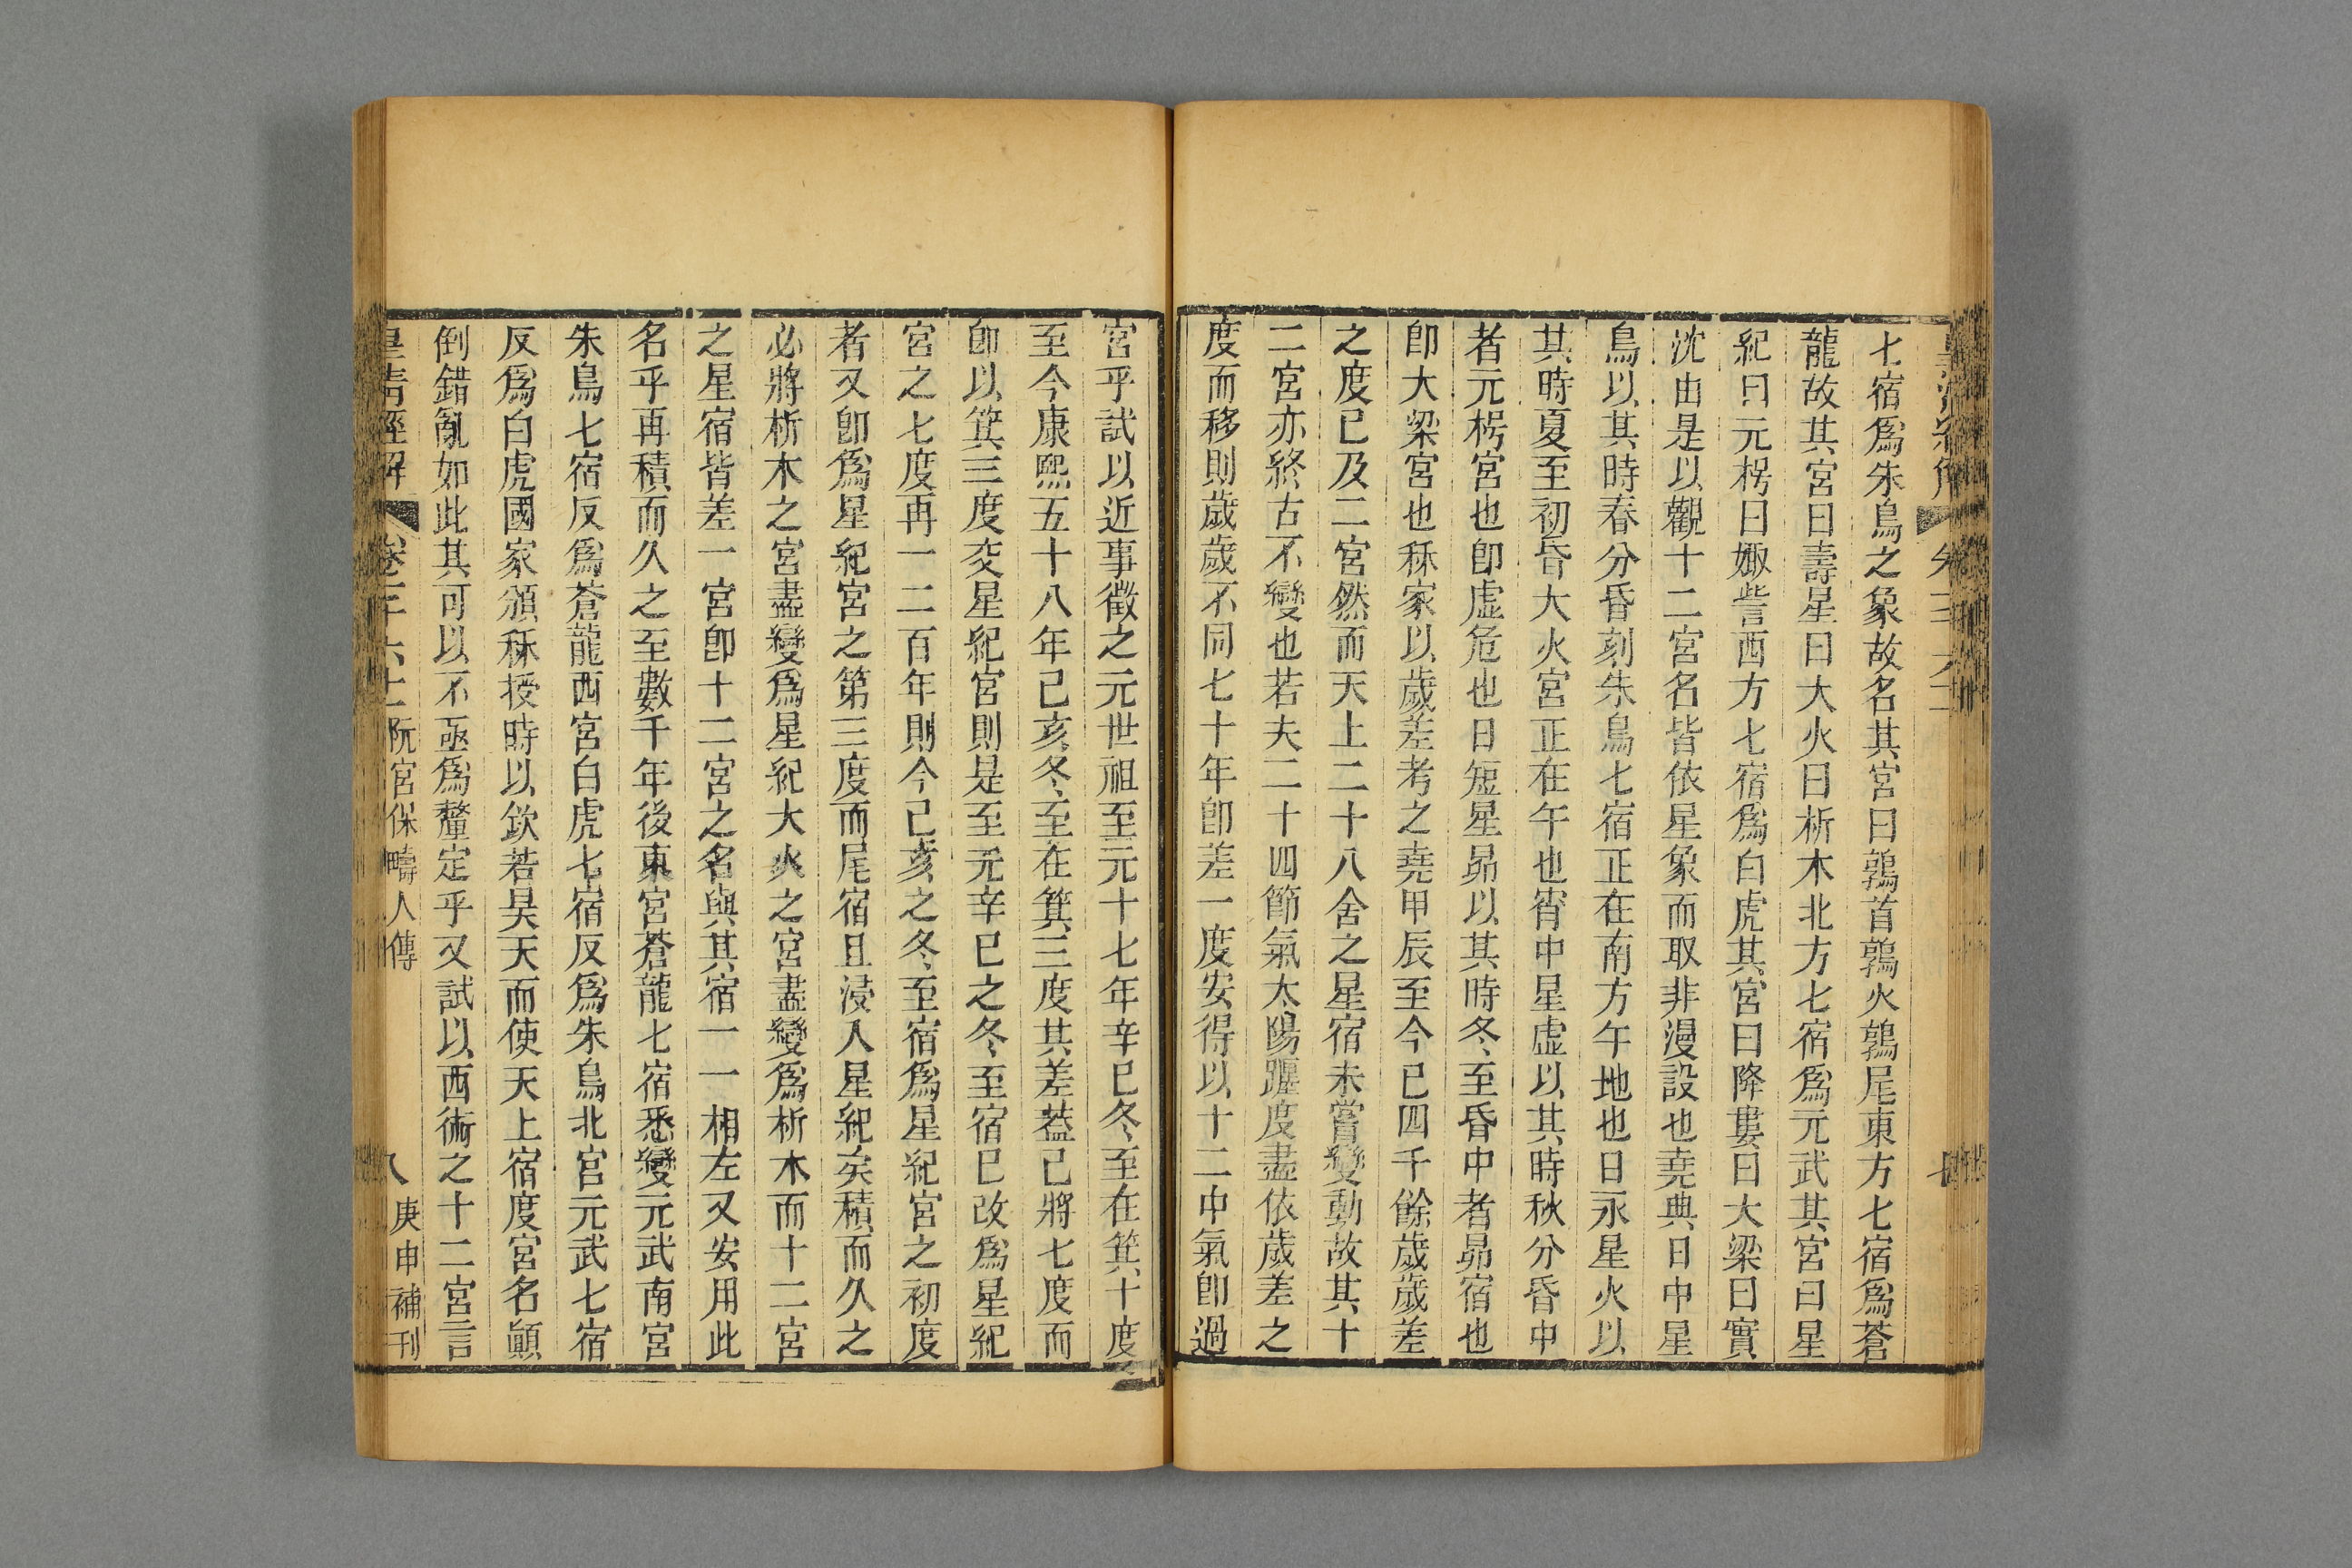 七宿爲朱鳥之象故名其宮曰鶉首鶉火鶉尾東方七宿爲蒼
龍故其宮曰壽星曰大火曰析木北方七宿爲元武其宮曰星
紀曰元枵曰娵訾西方七宿爲白虎其宮曰降婁曰大梁曰實
沈由是以觀十二宮名皆依星象而取非漫設也堯典日中星
鳥以其時春分昏刻朱鳥七宿正在南方午地也日永星火以
其時夏至初昏大火宮正在午也宵中星虛以其時秋分昏中
者元枵宮也卽虛危也日短星昴以其時冬至昏中者昴宿也
卽大梁宮也秝家以歲差考之堯甲辰至今已四千餘歲歲差
之度已及二宮然而天上二十八舍之星宿未嘗變動故其十
二宮亦終古不變也若夫二十四節氣太陽躔度盡依歲差之
度而移則歲歲不同七十年卽差一度安得以十二中氣卽過
宮乎試以近事徵之元世祖至元十七年辛巳冬至在箕十度
至今康熙五十八年己亥冬至在箕三度其差葢已將七度而
卽以箕三度交星紀宮則是至元辛巳之冬至宿已改爲星紀
宮之七度再一二百年則今己亥之冬至宿爲星紀宮之初度
者又卽爲星紀宮之第三度而尾宿且浸入星紀矣積而久之
必將析木之宮盡變爲星紀大火之宮盡變爲析木而十二宮
之星宿皆差一宮卽十二宮之名與其宿一一相左又安用此
名乎再積而久之至數千年後東宮蒼龍七宿悉變元武南宮
朱鳥七宿反爲蒼龍西宮白虎七宿反爲朱鳥北宮元武七宿
反爲白虎國家頒秝授時以欽若昊天而使天上宿度宮名顚
倒錯亂如此其可以不亟爲釐定乎又試以西術之十二宮言
皇清經解 卷 阮宮保疇人傳 八 庚申補刊